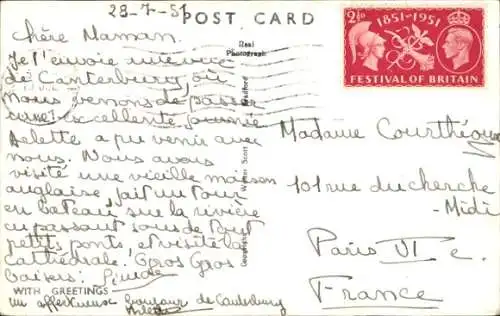 28-7-51
POST CARD
Real
Photograph
Chère Maman,
Je t'envoie une vue
de Canterbury, où
nous venons de passer
une excellente journée
Arlette a pu venir avec
nous. Nous avons
visité une vieille maison
anglaise, fait un tour
en bateau sur la rivière
en passant sous de tout
petits ponts et visité la
Cathédrale. Gros Gros
baisers.
WITH GREETINGS
un affectueux bonjour de Canterbury
Arlette
Copyright Walter Scott Bradford
2½D 1851-1951
FESTIVAL OF BRITAIN
Madame
101 rue du cherche
- Midi
Paris VI e.
France